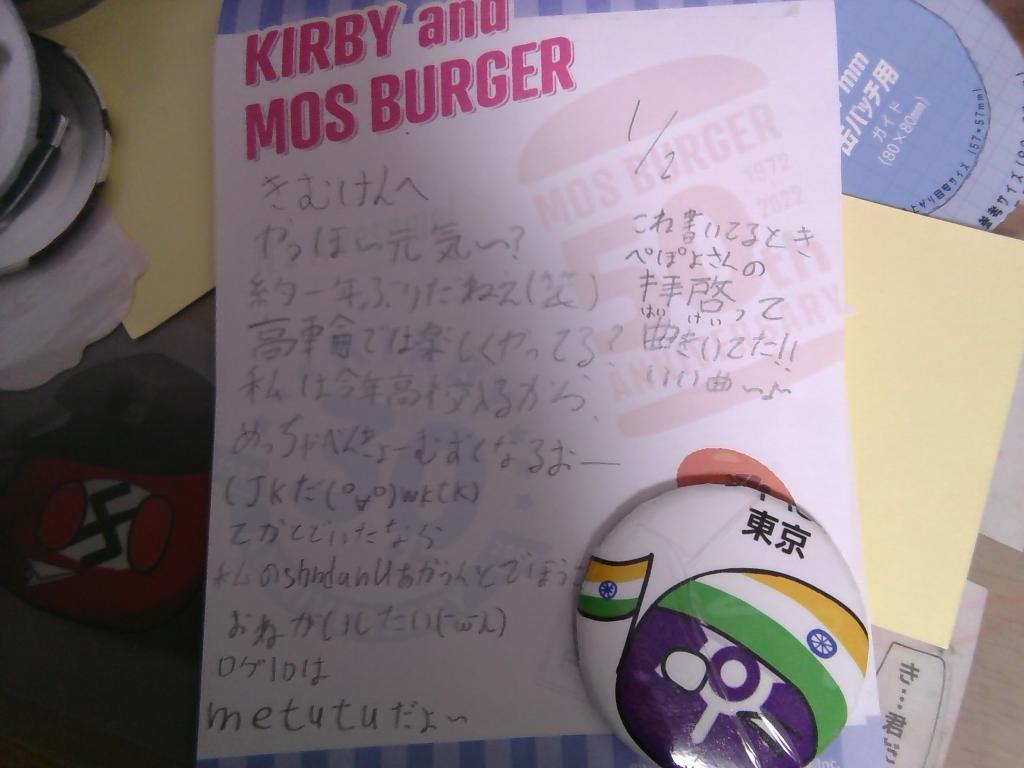 KIRBY and
MOS BURGER
1/2
きむけんへ
やっほい元気〜?
約一年ぶりだねえ(笑)
高輪では楽しくやってる?
私は今年高校入るから、
めっちゃべんきょーむずくなるおー
(JKだ(°▽°)wktk)
てかとどいたなら
私のshindanUあかうんとでほうこ
おねがいしたい(-ω人)
ログIDは
metutuだよ〜
これ書いてるとき
ぺぽよさんの
拝啓って
はいけい
曲きいてた!!
いい曲〜♪
MOS BURGER
1972
2022
50
ANNIVERSARY
東京
mm
缶バッチ用
ガイド
(80×80mm)
(57×57mm)
き…君だ